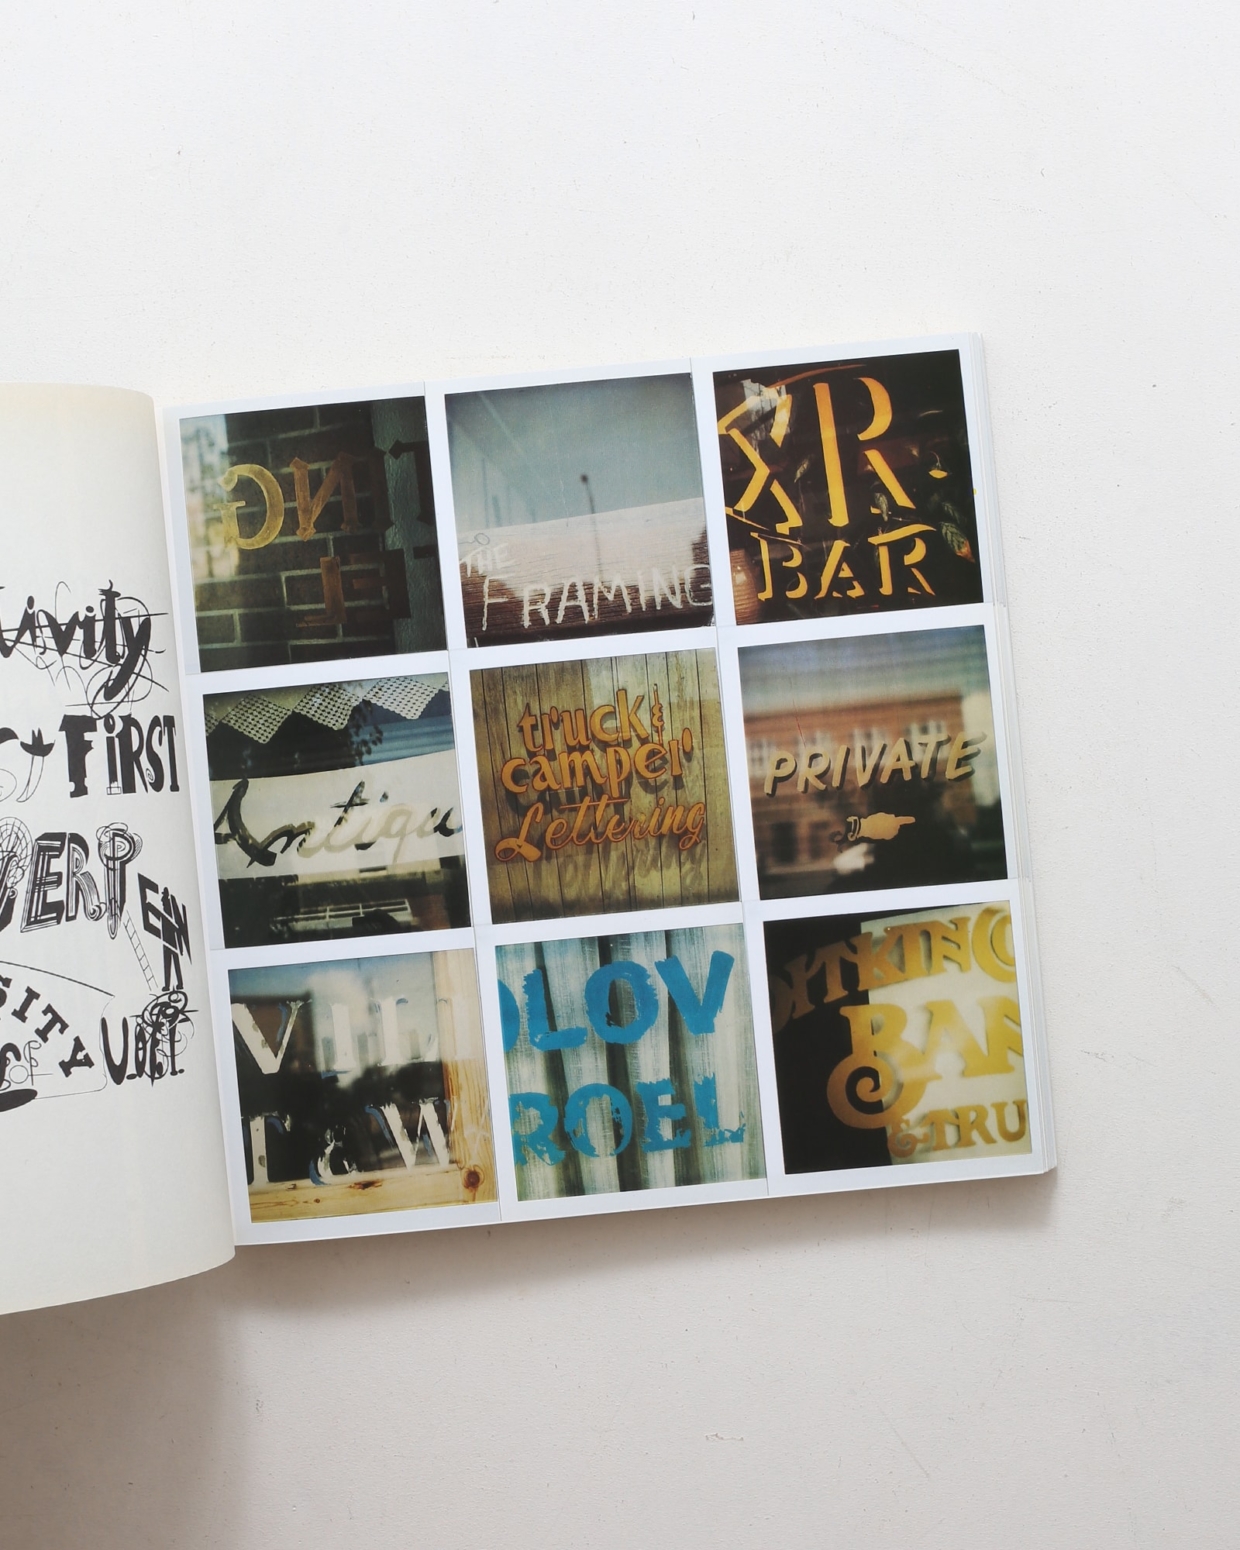 tivity
FiRST
DERP
EIN
SITY
U.
ING
LE
THE
FRAMING
R
BAR
Antiqu
truck &
camper
Lettering
PRIVATE
Vin
r & W
OLOV
ROEL
DITKING
BAN
& TRU